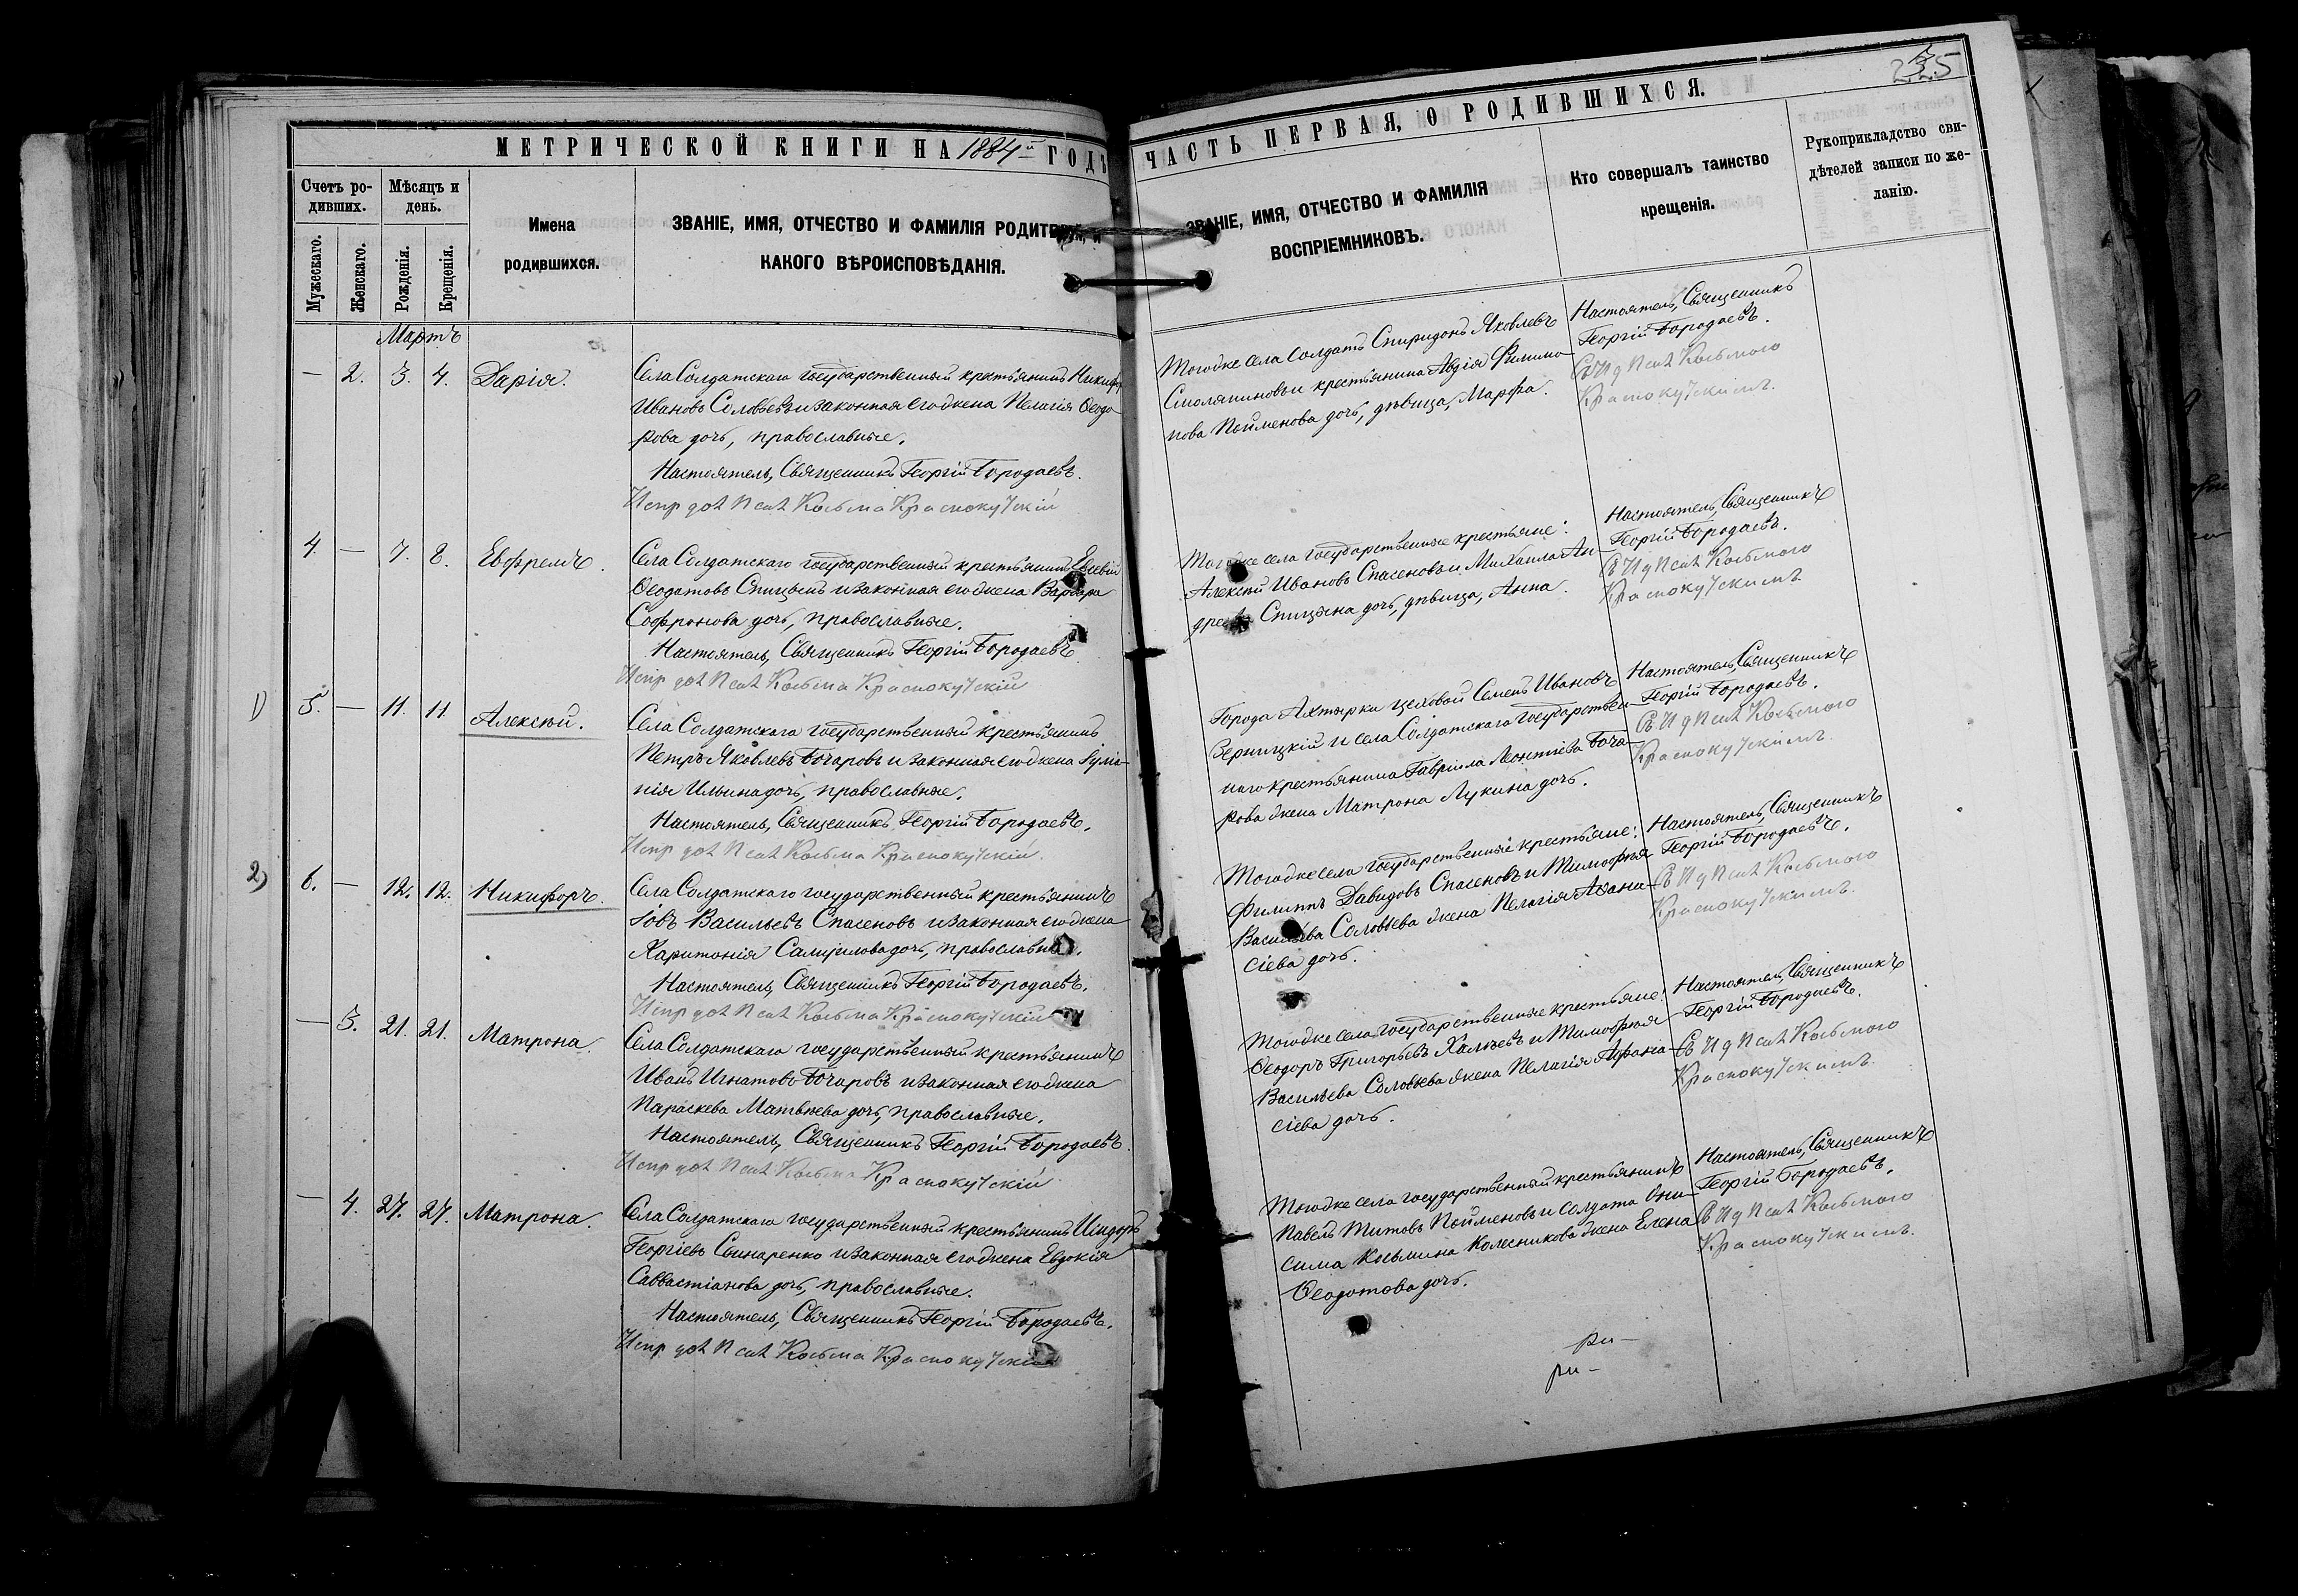 МЕТРИЧЕСКОЙ КНИГИ НА 1884й ГОДЪ
Счетъ ро-
дившихъ.
Мѣсяцъ и
день.
Мужескаго.
Женскаго.
Рожденія.
Крещенія.
Имена
родившихся.
ЗВАНІЕ, ИМЯ, ОТЧЕСТВО И ФАМИЛІЯ РОДИТЕЛЕЙ, И
КАКОГО ВѢРОИСПОВѢДАНІЯ.
Мартъ
— 2. 3. 4. Дарія.
Села Солдатскаго государственный крестьянинъ Никифоръ
Ивановъ Соловьевъ и законная его жена Пелагія Ѳеодо-
рова дочь, православные.
Настоятель, Священникъ Георгій Бородаевъ.
Испр дол Псал Косьма Краснокутскій
4. — 7. 8. Евфремъ.
Села Солдатскаго государственный крестьянинъ Евсевій
Ѳеодотовъ Спицынъ и законная его жена Варвара
Софронова дочь, православные.
Настоятель, Священникъ Георгій Бородаевъ.
Испр дол Псал Косьма Краснокутскій
1) 5. — 11. 11. Алексѣй.
Села Солдатскаго государственный крестьянинъ
Петръ Яковлевъ Бочаровъ и законная его жена Іуліа-
нія Ильина дочь, православные.
Настоятель, Священникъ Георгій Бородаевъ.
Испр дол Псал Косьма Краснокутскій.
2) 6. — 12. 12. Никифоръ.
Села Солдатскаго государственный крестьянинъ
Іовъ Васильевъ Спасеновъ и законная его жена
Харитонія Самуилова дочь, православные.
Настоятель, Священникъ Георгій Бородаевъ.
Испр дол Псал Косьма Краснокутскій
— 3. 21. 21. Матрона.
Села Солдатскаго государственный крестьянинъ
Иванъ Игнатовъ Бочаровъ и законная его жена
Параскева Матвѣева дочь, православные.
Настоятель, Священникъ Георгій Бородаевъ.
Испр дол Псал Косьма Краснокутскій
— 4. 27. 27. Матрона.
Села Солдатскаго государственный крестьянинъ Исидоръ
Георгіевъ Свинаренко и законная его жена Евдокія
Саввастіанова дочь, православные.
Настоятель, Священникъ Георгій Бородаевъ.
Испр дол Псал Косьма Краснокутскій
ЧАСТЬ ПЕРВАЯ, О РОДИВШИХСЯ.
ЗВАНІЕ, ИМЯ, ОТЧЕСТВО И ФАМИЛІЯ
ВОСПРІЕМНИКОВЪ.
Кто совершалъ таинство
крещенія.
Рукоприкладство сви-
дѣтелей записи по же-
ланію.
Тогоже села солдатъ Спиридонъ Яковлевъ
Смоляниновъ и крестьянина Авдія Филимо-
нова Пойменова дочь, дѣвица, Марфа.
Настоятель, Священникъ
Георгій Бородаевъ.
Съ И д Псал Косьмою
Краснокутскимъ.
Тогоже села государственные крестьяне:
Алексѣй Ивановъ Спасеновъ и Михаила Ан-
дреева Спицына дочь, дѣвица, Анна.
Настоятель, Священникъ
Георгій Бородаевъ.
Съ И д Псал Косьмою
Краснокутскимъ
Города Ахтырки цеховой Семенъ Ивановъ
Верницкій и села Солдатскаго государствен-
наго крестьянина Гавріила Леонтіева Боча-
рова жена Матрона Лукина дочь.
Настоятель, Священникъ
Георгій Бородаевъ.
Съ И д Псал Косьмою
Краснокутскимъ.
Тогоже села государственные крестьяне:
Филиппъ Давидовъ Спасеновъ и Тимофея
Васильева Соловьева жена Пелагія Аѳана-
сіева дочь.
Настоятель, Священникъ
Георгій Бородаевъ.
Съ И д Псал Косьмою
Краснокутскимъ.
Тогоже села государственные крестьяне:
Ѳеодоръ Григорьевъ Халѣевъ и Тимофея
Васильева Соловьева жена Пелагія Афана-
сіева дочь.
Настоятель, Священникъ
Георгій Бородаевъ.
Съ И д Псал Косьмою
Краснокутскимъ.
Тогоже села государственный крестьянинъ
Павелъ Титовъ Пойменовъ и солдата Они-
сима Косьмина Колесникова жена Елена
Ѳеодотова дочь.
Настоятель, Священникъ
Георгій Бородаевъ.
Съ И д Псал Косьмою
Краснокутскимъ.
ри—
ри—